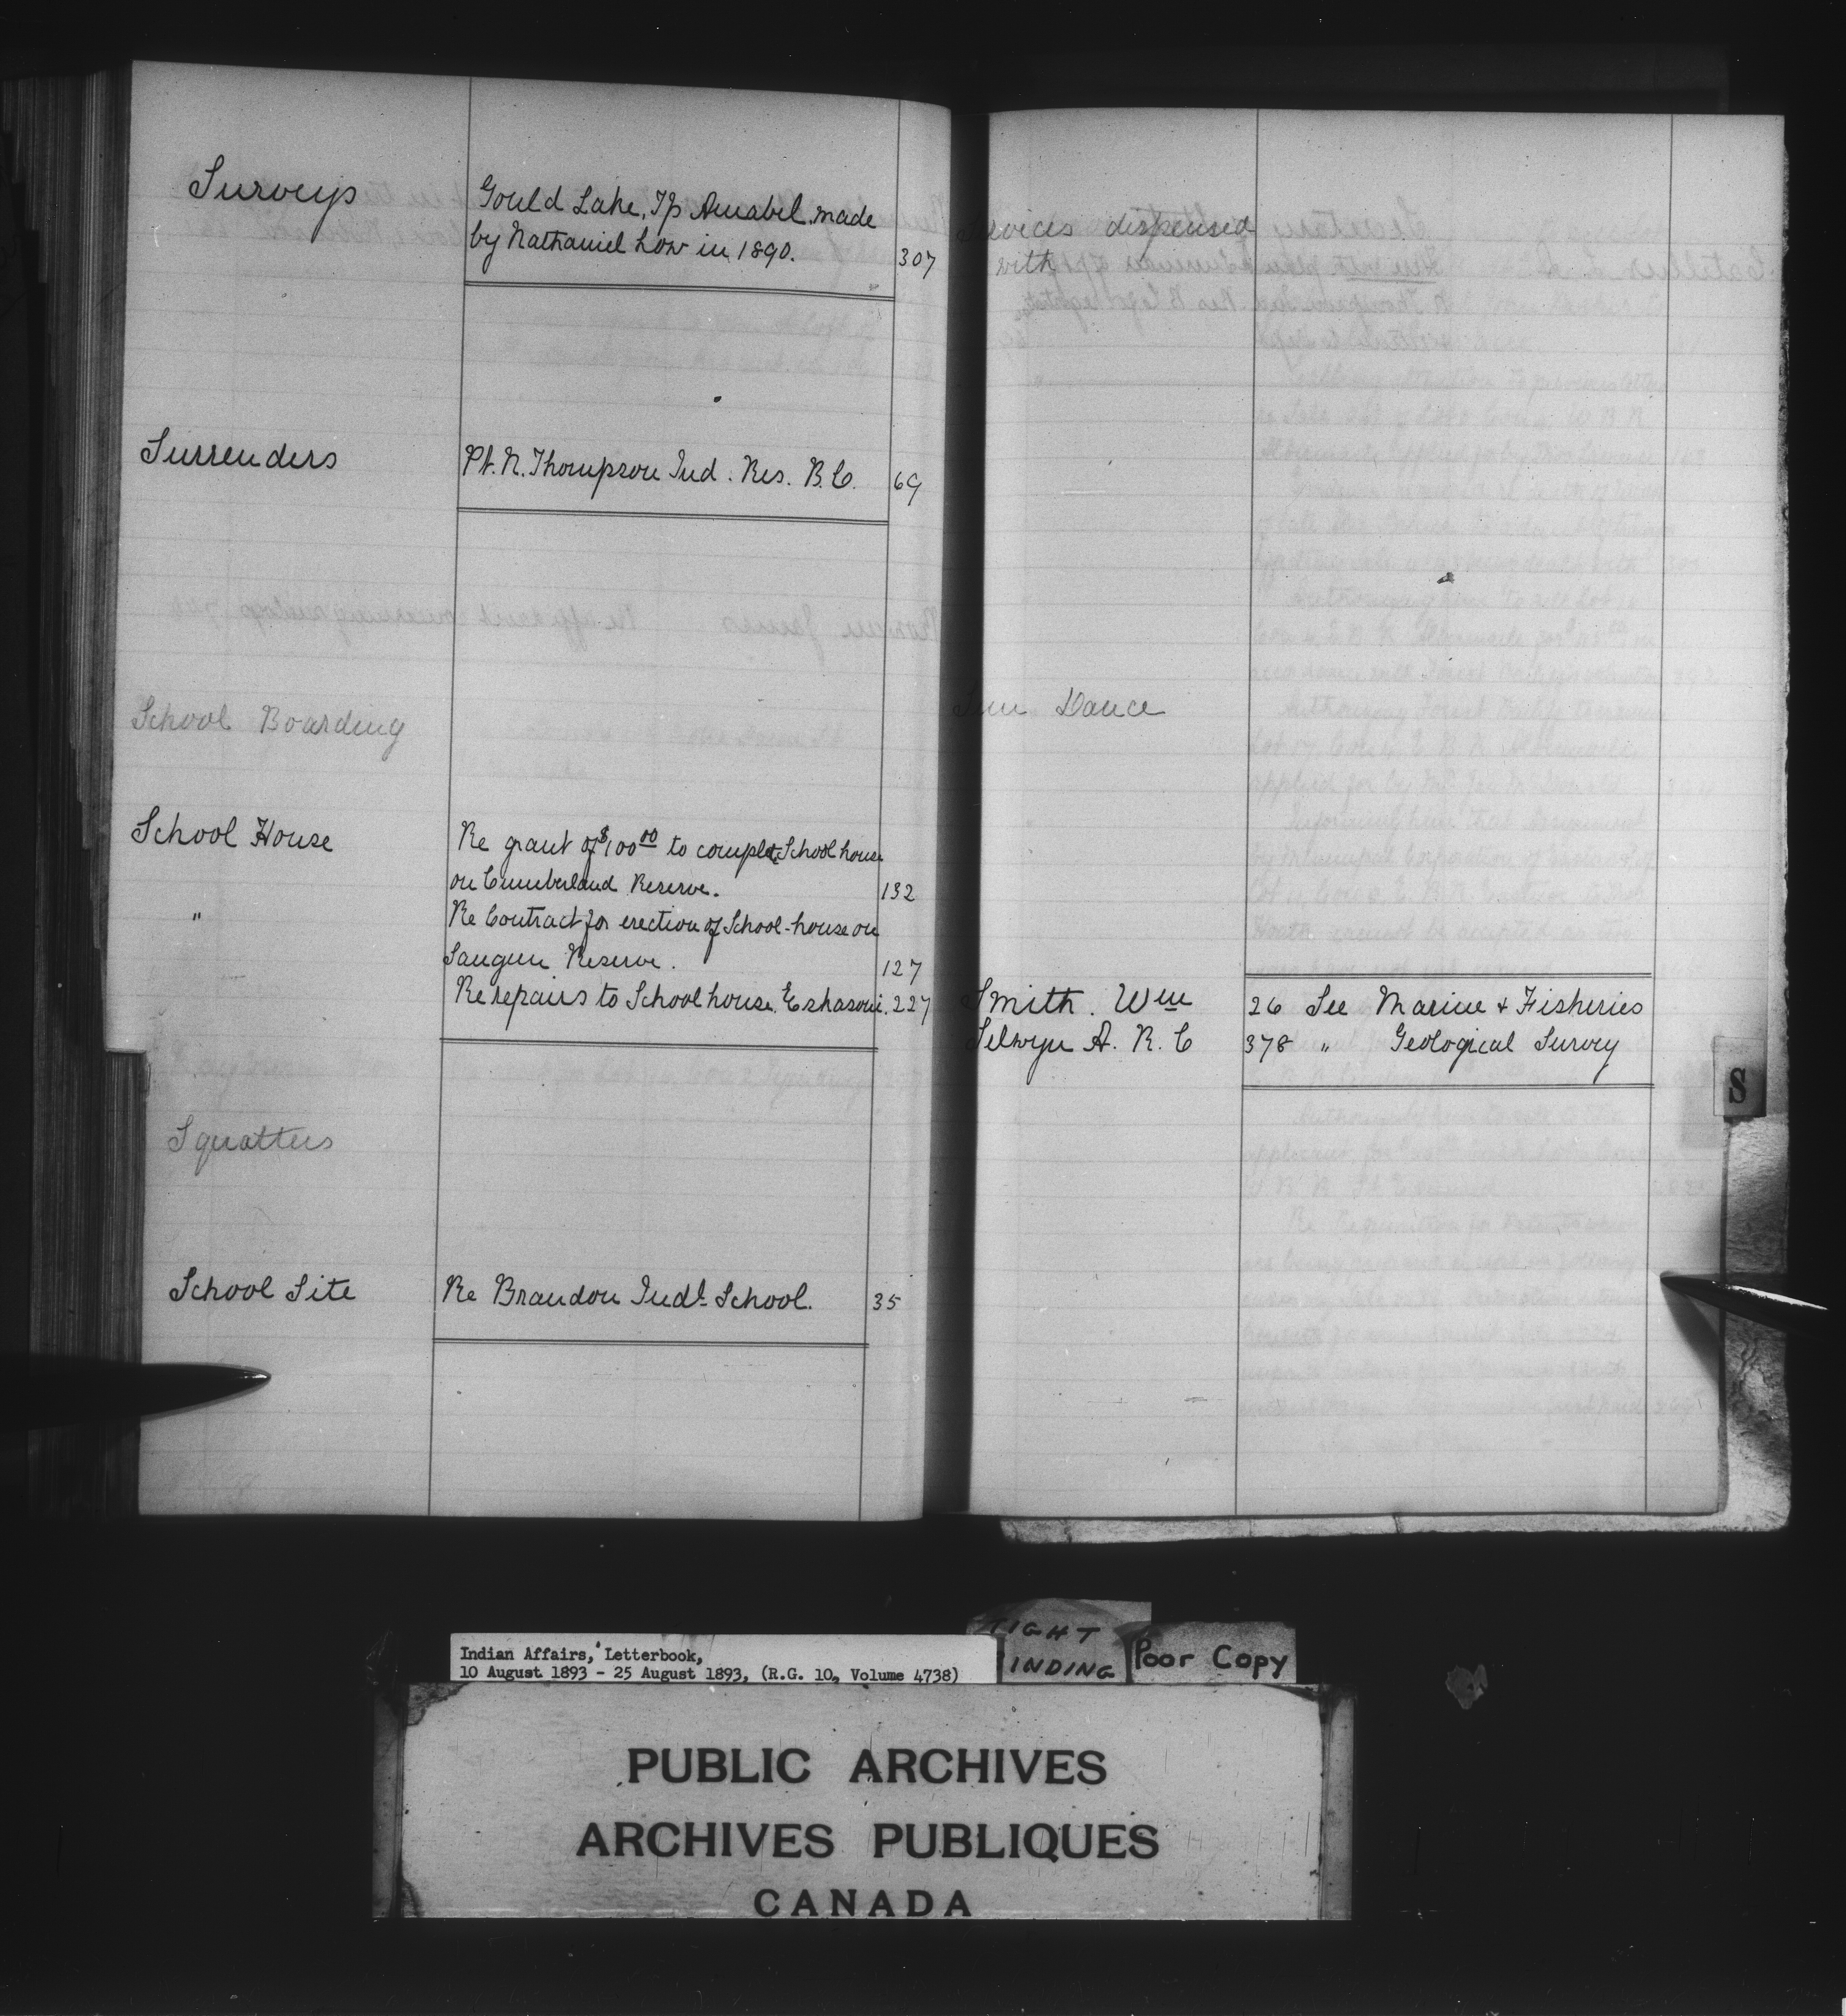 Surveys
Gould Lake, Tp Amabel. made
by Nathaniel Low in 1890. 307
Surrenders
Pt. N. Thompson Ind. Res. B.C. 69
School Boarding
School House
Re grant of $100 00 to complete School house
on Cumberland Reserve. 132
"
Re Contract for erection of School-house on
Saugeen Reserve. 127
Re repairs to School house. Eskasoni. 227
Squatters
School Site
Re Brandon Indl. School. 35
Services dispensed
with
Sun Dance
Smith. Wm 26 See Marine & Fisheries
Selwyn A. R. C 378 " Geological Survey
S
Indian Affairs, Letterbook,
10 August 1893 - 25 August 1893, (R.G. 10, Volume 4738)
TIGHT
BINDING
Poor Copy
PUBLIC ARCHIVES
ARCHIVES PUBLIQUES
CANADA